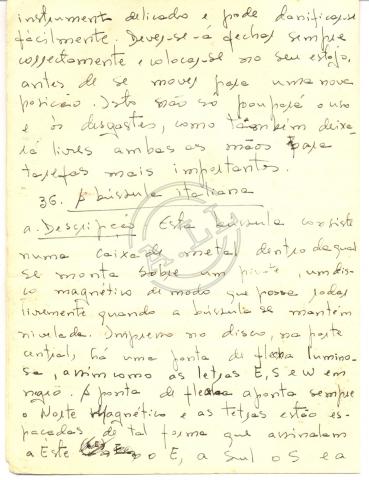 instrumento delicado e pode danificar-se
fácilmente. Dever-se-á fechar sempre
correctamente e colocar-se no seu estojo,
antes de se mover para uma nova
posição. Isto não só poupará o uso
e os desgastes, como também deixa-
rá livres ambas as mãos para
tarefas mais importantes.
36. A bússula italiana
a. Descrição Esta bússula consiste
numa caixa de metal dentro da qual
se monta sobre um pivote um dis-
co magnético de modo que possa rodar
livremente quando a bússula se mantém
nivelada. Impresso no disco, na parte
central, há uma ponta de flecha lumino-
sa, assim como as letras E, S e W em
negro. A ponta de flecha aponta sempre
o Norte Magnético e as letras estão es-
paçadas de tal forma que assinalam
a Este o E, a Sul o S e a